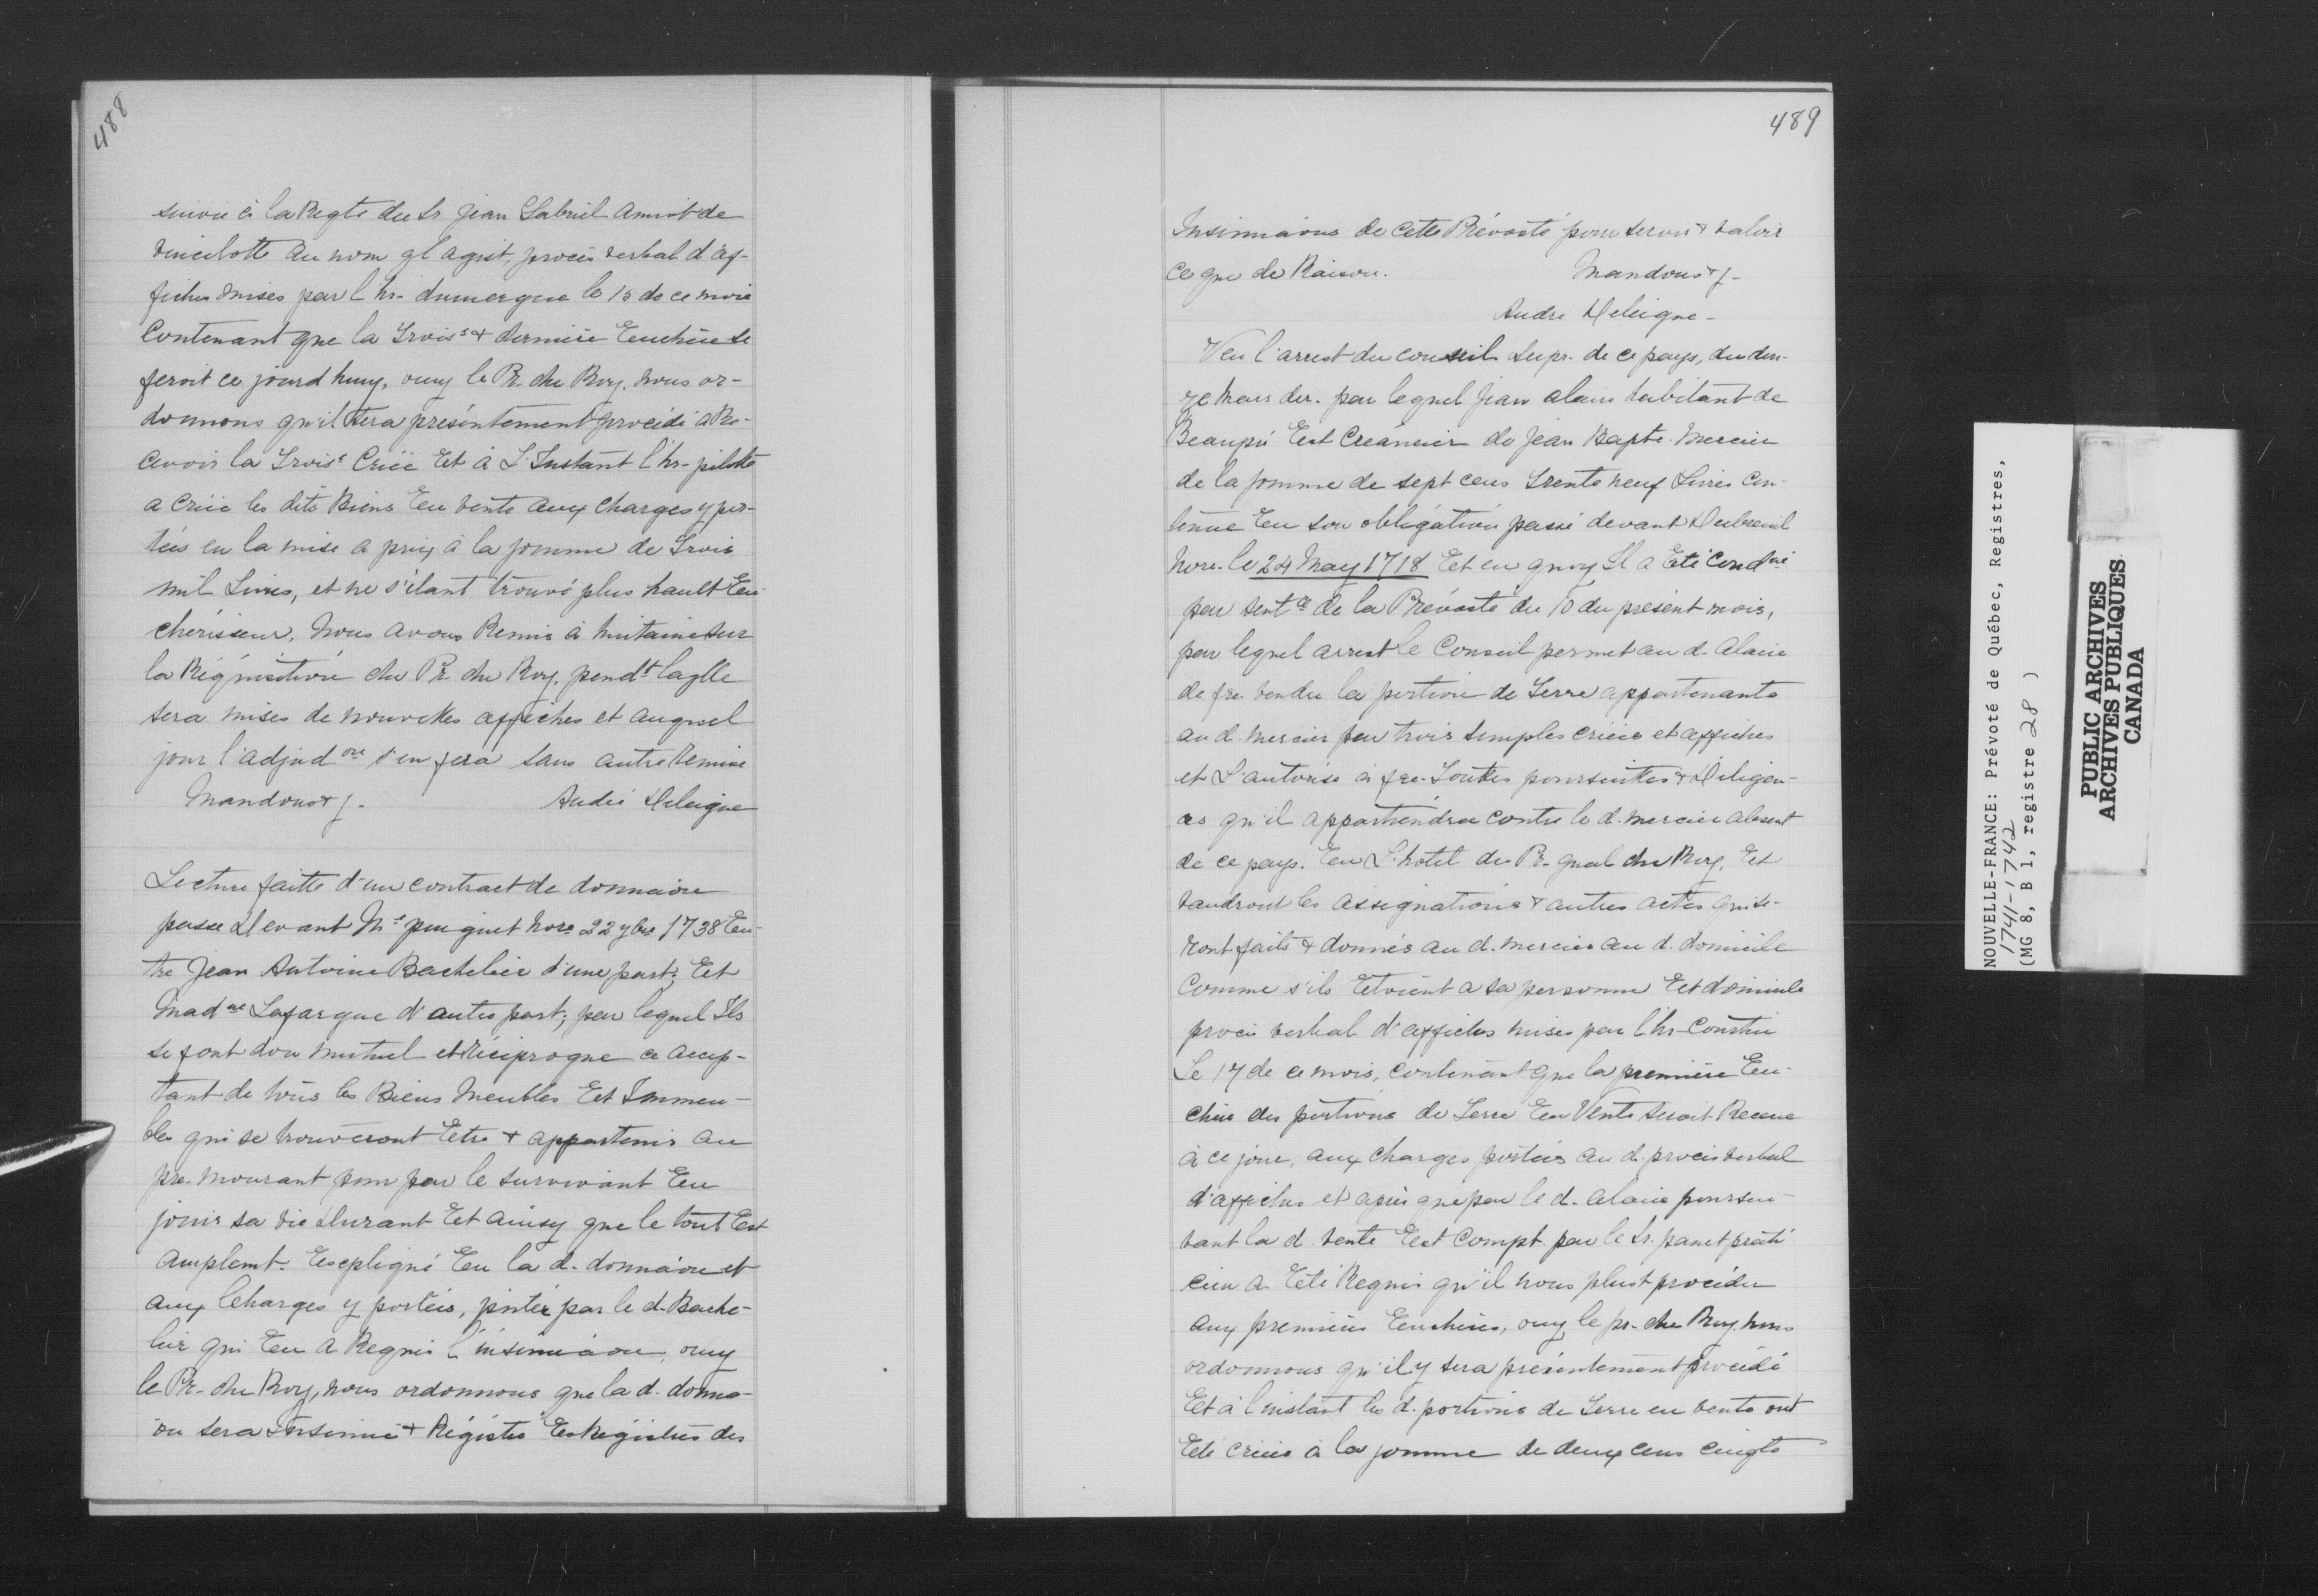 488
suivie à la Reqte du Sr Jean Gabriel Amiot de
vincelotte au nom ql agist, procès verbal d'af-
fiches mises par l'hr. dumergue le 15 de ce mois
Contenant que la Trois^e & derniere Enchère se
feroit ce jourd huy, ouy le Pr. du Roy, nous or-
donnons qu'il sera présentement procédé à Re-
cevoir la Trois^e Criée Et à L'Instant l'hr. pilotte
a criée les dits Biens En vente aux charges y por-
tées en la mise a prix à la somme de Trois
mil Livres, et ne s'étant trouvé plus hault En-
chérisseur, Nous avons Remis à huitaine sur
la Réquisition du Pr. du Roy, pendt laqlle
sera mises de nouvelles affiches et auquel
jour l'adjud^on s'en fera sans autre Remise
Mandons & f. André Deleigne
Lecture faitte d'un contract de donnaôn
passé Devant M^e puiguet Nore 22 7bre 1738 En-
tre Jean Antoine Bachelier d'une part; Et
Mad^ne Lafargue d'autre part; par lequel Ils
se font don mutuel et Réciproque ce accep-
tant de tous les Biens Meubles Et Immeu-
bles qui se trouveront Etre & appartenir au
pre. mourant pour par le survivant En
jouir sa vie Durant Et ainsy que le tout Est
amplemt. Expliqué En la d. donnaôn et
aux Charges y portées, portée par le d. Bache-
lier qui En a Requis l'insinuaôn, ouy
le Pr. du Roy, nous ordonnons que la d. donna-
ôn sera Insinuée & Régistré Es Régistres des
489
Insinuaôns de cette Prévosté pour servir & valoir
ce que de Raison. Mandons & f.
André Deleigne
Veu l'arrest du conseil Supr. de ce pays, du
der. par lequel Jean alain habitant de
Beaupré Est Creancier de Jean Bapte. Mercier
de la somme de sept cens Trente neuf Livres con-
tenue En son obligation passé devant Dubreuil
Nore. le 24 May 1718 Et en quoy Il a Eté Cond^né
par sent^ce de la Prévosté du 10 du présent mois,
par lequel arrest le Conseil permet au d. Alain
de fre. vendre la portion de Terre appartenante
au d. mercier par trois simples criées et affiches
et L'autorise à fre. Toutes poursuittes & Diligen-
ces qu'il appartiendra contre le d. mercier absent
de ce pays. En L'hotel du Pr. gnal du Roy, Et
vaudront les assignations & autres actes qui se-
ront faits & donnés au d. mercier au d. domicile
Comme s'ils Etoient a sa personne Et domicile
procès verbal d'affiches mises par l'hr. Courtin
Le 17 de ce mois, contenant que la première En-
chère des portions de Terre En Vente seroit Receue
à ce jour, aux charges portées au d. procès verbal
d'affiches et après que par le d. alain poursui-
vant la d. vente Est Compt. par le Sr. panet prati
cien a Eté Requis qu'il nous plust procéder
aux premières Enchères, ouy le pr. du Roy, nous
ordonnons qu'il y sera présentement procédé
Et à l'instant les d. portions de Terre en vente ont
Eté criées à la somme de deux cens cinqte
NOUVELLE-FRANCE: Prévoté de Québec, Registres,
1741-1742
(MG 8, B 1, registre 28 )
PUBLIC ARCHIVES
ARCHIVES PUBLIQUES
CANADA